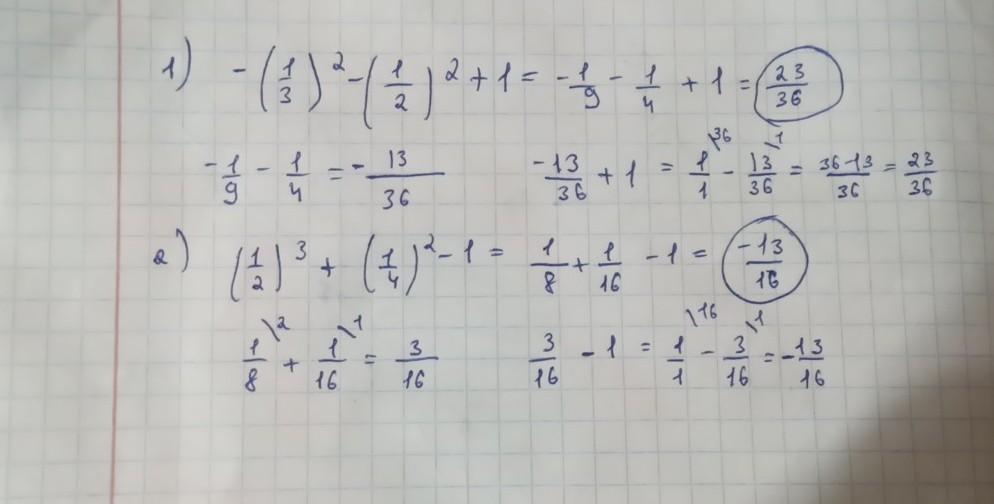 1) -(1/3)² - (1/2)² + 1 = -1/9 - 1/4 + 1 = 23/36
-1/9 - 1/4 = -13/36 -13/36 + 1 = 1/1\36 - 13/36\1 = 36-13/36 = 23/36
2) (1/2)³ + (1/4)² - 1 = 1/8 + 1/16 - 1 = -13/16
1/8\2 + 1/16\1 = 3/16 3/16 - 1 = 1/1\16 - 3/16\1 = -13/16